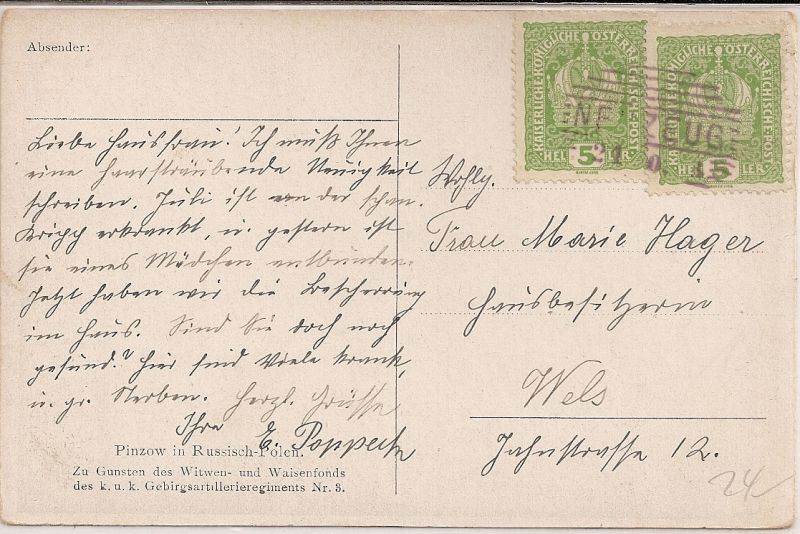 Absender:
Liebe Hausfrau! Ich muß Ihnen
eine haarsträubende Neuigkeit
schreiben. Juli ist an der span.
Gripp erkrankt, u. gestern ist
sie eines Mädchen entbunden.
Jetzt haben wir die Bescherrung
im Haus. Sind Sie doch noch
gesund? hier sind Viele krank,
u. gr. Sterben. Herzl. Grüsse
Ihre E.
Pinzow in Russisch-Polen.
Zu Gunsten des Witwen- und Waisenfonds
des k. u. k. Gebirgsartillerieregiments Nr. 3.
KAISERLICHE KÖNIGLICHE ÖSTERREICHISCHE POST
5
HELLER
KAISERLICHE KÖNIGLICHE ÖSTERREICHISCHE POST
5
HELLER
Wohlg.
Frau Marie Hager
Hausbesitzerin
Wels
Jahnstrasse 12.
24